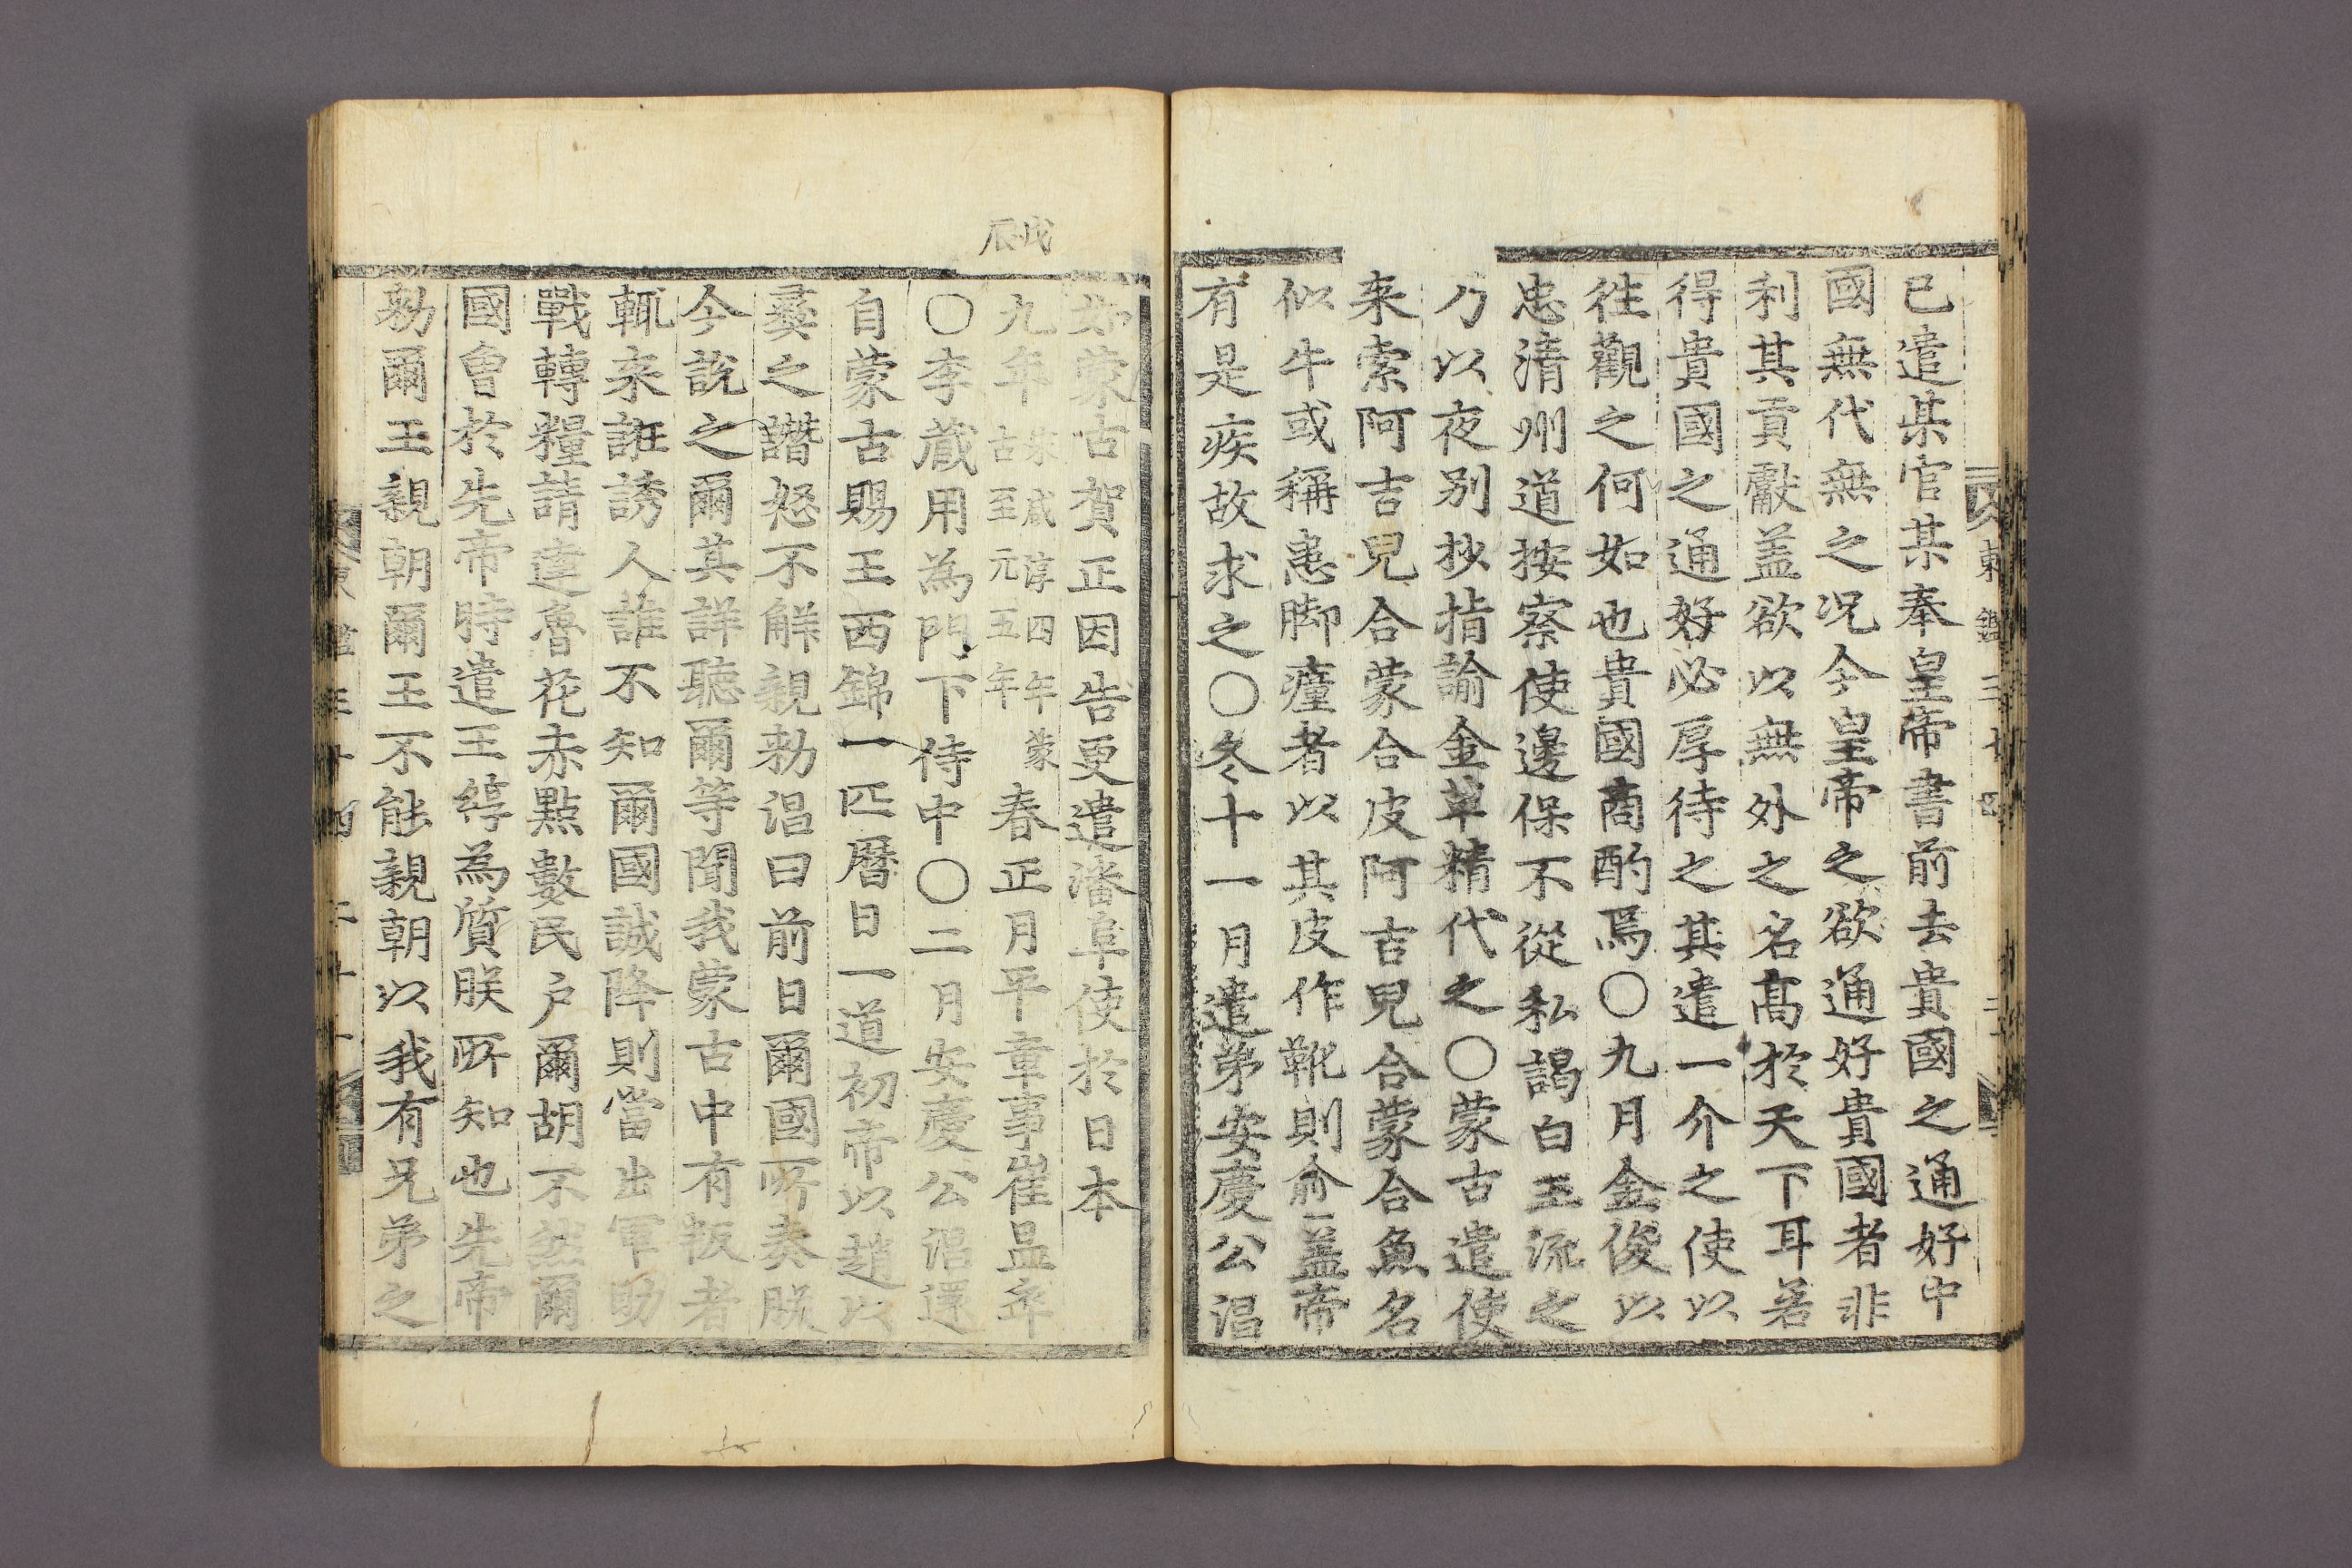 已遣某官某奉皇帝書前去貴國之通好中
國無代無之况今皇帝之欲通好貴國者非
利其貢獻盖欲以無外之名髙於天下耳若
得貴國之通好必厚待之其遣一介之使以
徃觀之何如也貴國商酌焉〇九月金俊以
忠清州道按察使邊保不從私謁白王流之
乃以夜别抄指諭金革精代之〇蒙古遣使
来索阿吉兒合蒙合皮阿吉兒合蒙合魚名
似牛或稱患脚瘇者以其皮作靴則俞盖帝
有是疾故求之〇冬十一月遣弟安慶公淐
如蒙古賀正因告更遣潘阜使於日本
戊辰
九年宋咸淳四年蒙古至元五年春正月平章事崔昷卒
〇李蔵用為門下侍中〇二月安慶公淐還
自蒙古賜王西錦一匹曆日一道初帝以趙以
彛之譖怒不觧親勑淐曰前日爾國所奏朕
今説之爾其詳聽爾等聞我蒙古中有叛者
輒来誑誘人誰不知爾國誠降則當出軍助
戰轉糧請達魯花赤點數民户爾胡不然爾
國曾於先帝時遣王綧為質朕所知也先帝
勑爾王親朝爾王不能親朝以我有兄弟之
東鑑三十四 二十一